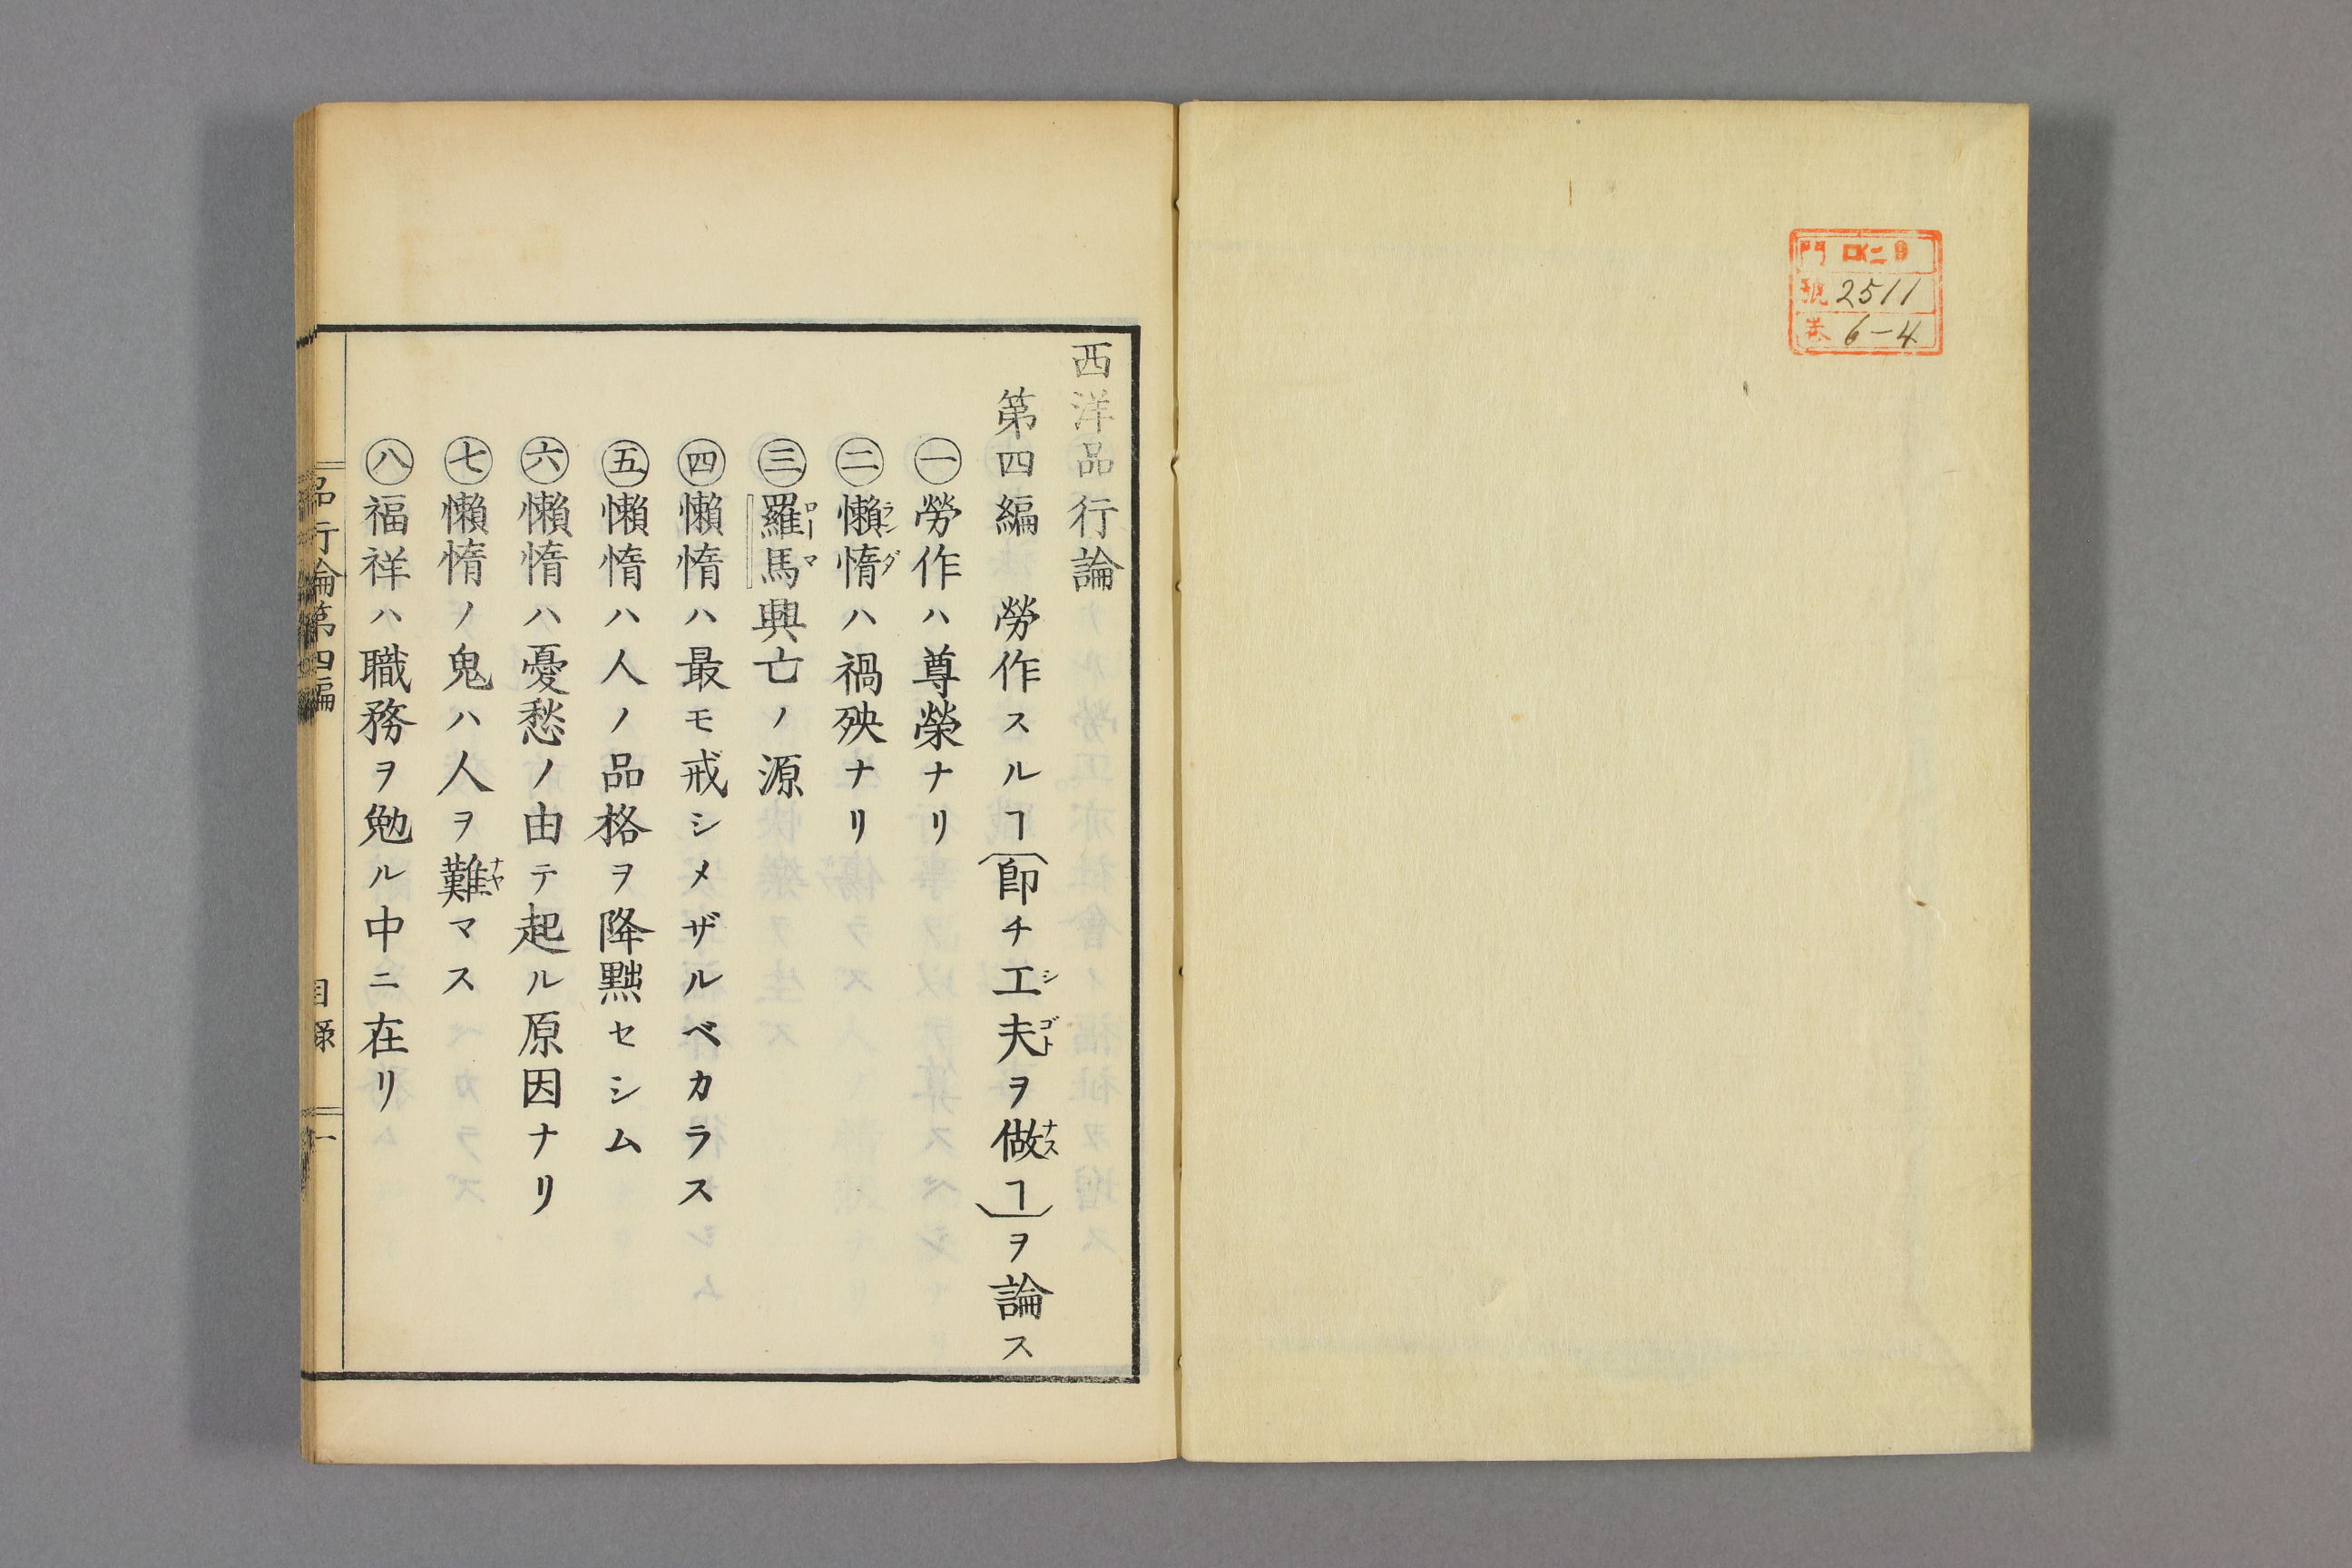 門
號 2511
巻 6-4
西洋品行論
第四編 勞作スルヿ(卽チ工夫ヲ做ヿ)ヲ論ス
シゴト
ナス
㊀勞作ハ尊榮ナリ
㊁懶惰ハ禍殃ナリ
ランダ
㊂羅馬興亡ノ源
ローマ
㊃懶惰ハ最モ戒シメザルベカラス
㊄懶惰ハ人ノ品格ヲ降黜セシム
㊅懶惰ハ憂愁ノ由テ起ル原因ナリ
㊆懶惰ノ鬼ハ人ヲ難マス
ナヤ
㊇福祥ハ職務ヲ勉ル中ニ在リ
品行論第四編 目録 一